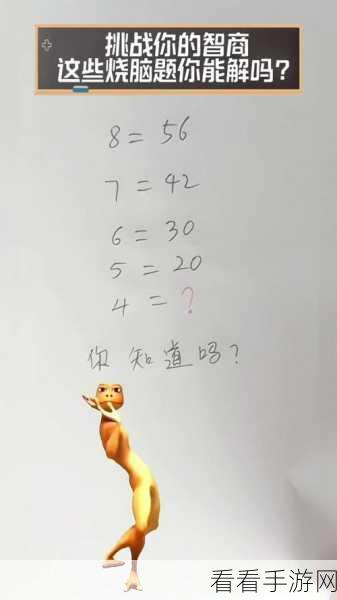 挑战你的智商
这些烧脑题你能解吗?
8 = 56
7 = 42
6 = 30
5 = 20
4 = ?
你知道吗?
看看手游网